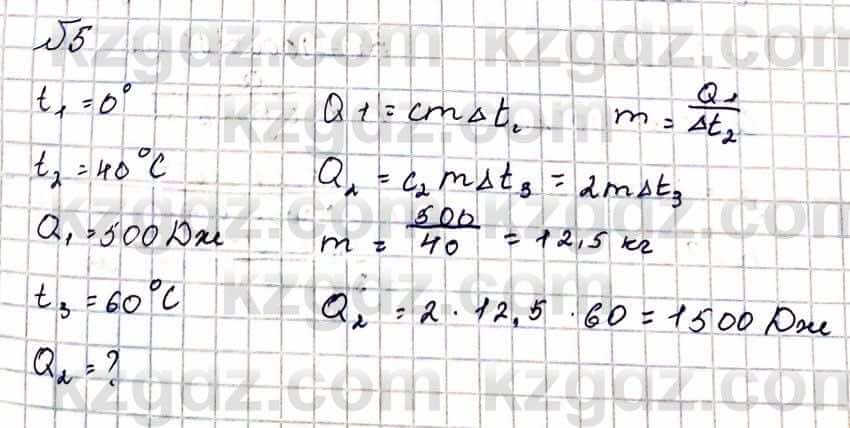 №5
t₁ = 0°
t₂ = 40°C
Q₁ = 500 Дж
t₃ = 60°C
Q₂ = ?
Q1 = cmΔt₂ m = Q₁/Δt₂
Q₂ = c₂mΔt₃ = 2mΔt₃
m = 500/40 = 12,5 кг
Q₂ = 2 · 12,5 · 60 = 1500 Дж
kzgdz.com